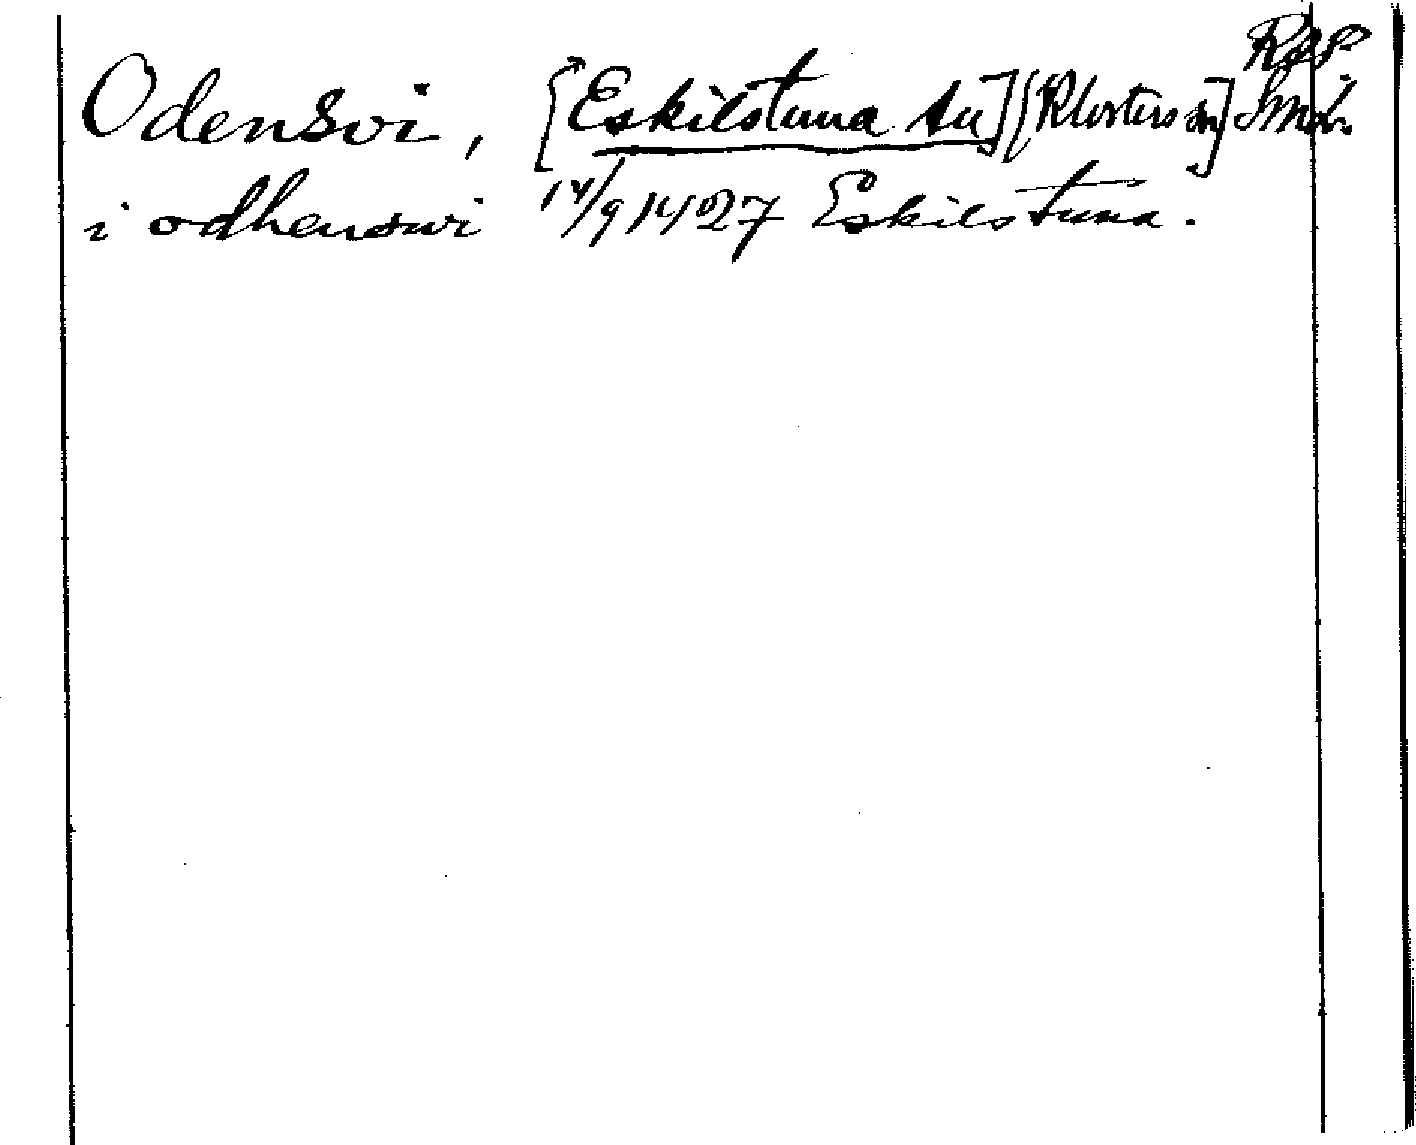 RAP
Odensvi, [Eskilstuna sn] [Klosters sn] Smål.
i odhenswi 14/9 1427 Eskilstuna.